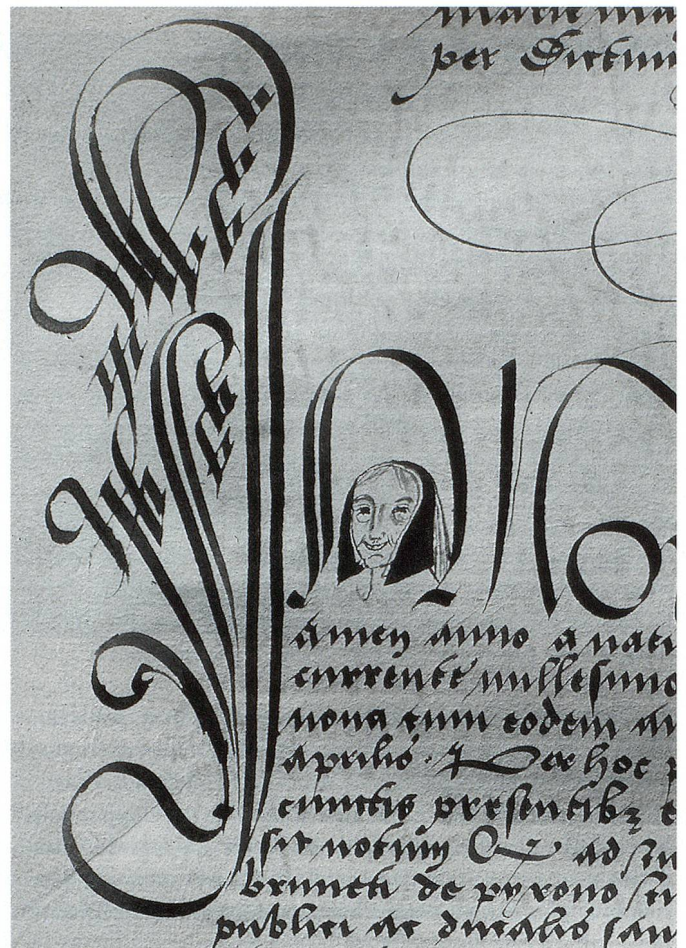 marie ma
per dictum
In No
amen anno a nati
currente millesimo
nona cum eodem an
aprilis. Per hoc p
cunctis presentib3
sit notum Q ad
bruneti de pyxono
publici ac ducalis